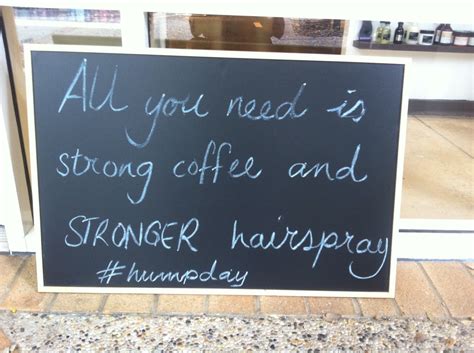 All you need is
strong coffee and
STRONGER hairspray
#humpday